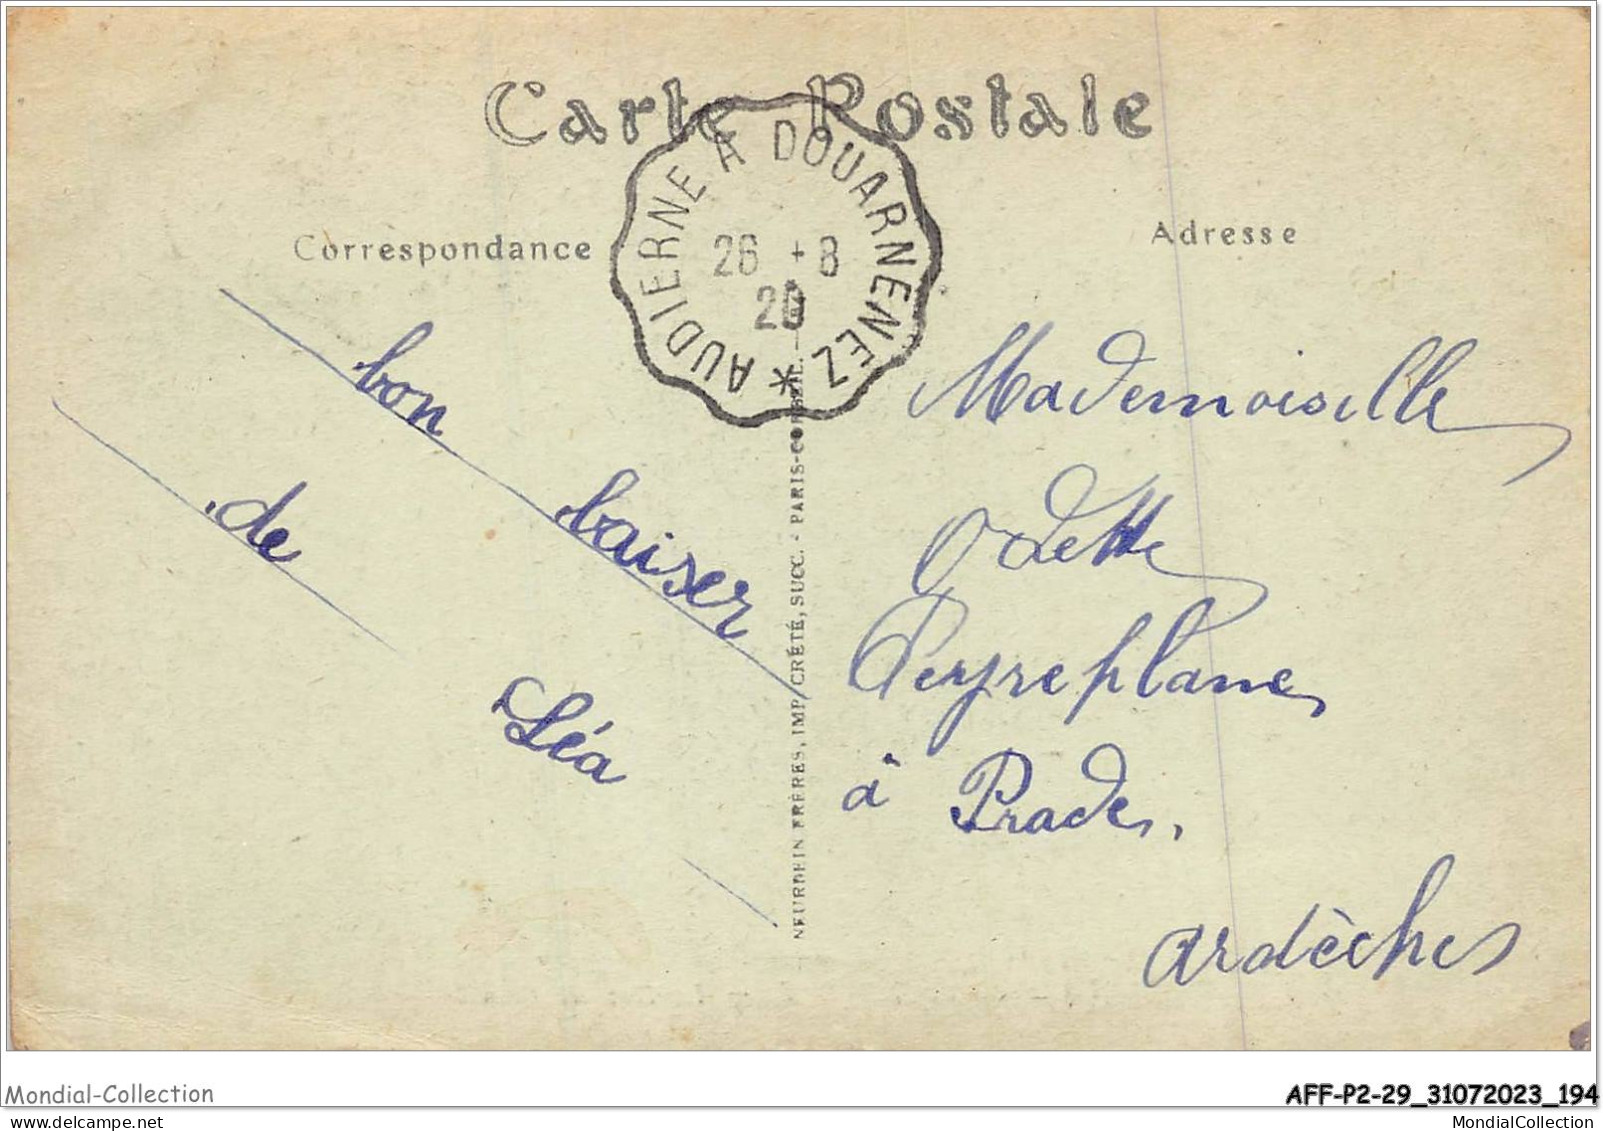 Carte Postale
Correspondance
Adresse
AUDIERNE A DOUARNENEZ *
26 + 8
20
bon baiser
de
Léa
NEURDEIN FRÈRES, IMP. CRÉTÉ, SUCC. - PARIS-CORBEIL.
Mademoiselle
Odette
Peyreplane
à Prades,
Ardèches
Mondial-Collection
AFF-P2-29_31072023_194
www.delcampe.net
MondialCollection